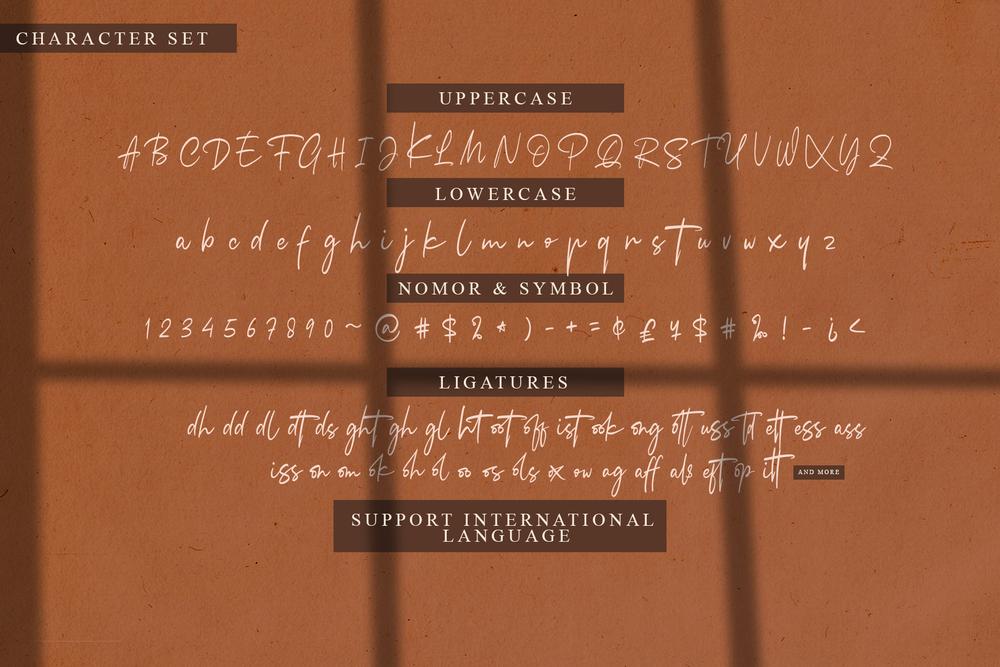 CHARACTER SET
UPPERCASE
A B C D E F G H I J K L M N O P Q R S T U V W X Y Z
LOWERCASE
a b c d e f g h i j k l m n o p q r s t u v w x y z
NOMOR & SYMBOL
1 2 3 4 5 6 7 8 9 0 ~ @ # $ % * ) - + = ¢ £ ¥ $ # ‰ ! - ¡ <
LIGATURES
dh dd dl dt ds ght gh gl ht oot off ist ook ong ott uss td ett ess ass
iss on om ok oh ol oo os ols ox ow ag aff als eft op itt AND MORE
SUPPORT INTERNATIONAL
LANGUAGE